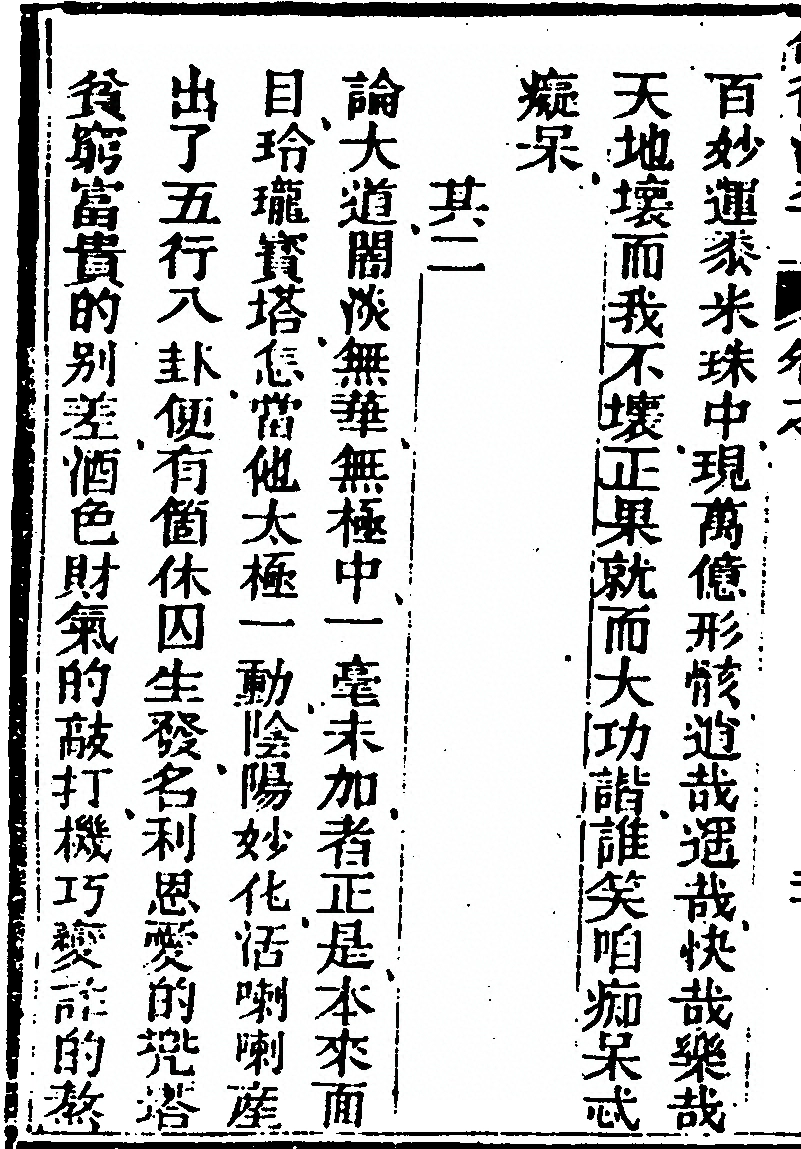 百妙運黍米珠中現萬億形骸道哉遇哉快哉樂哉
天地壞而我不壞正果就而大功諧誰笑咱痴呆忒
癡呆
其二
論大道闇淡無華無極中一毫未加者正是本來面
目玲瓏寳塔怎當他太極一動陰陽妙化活喇喇産
出了五行八卦便有箇休囚生發名利恩愛的兠塔
貧窮富貴的别差酒色財氣的敲打機巧變詐的熬